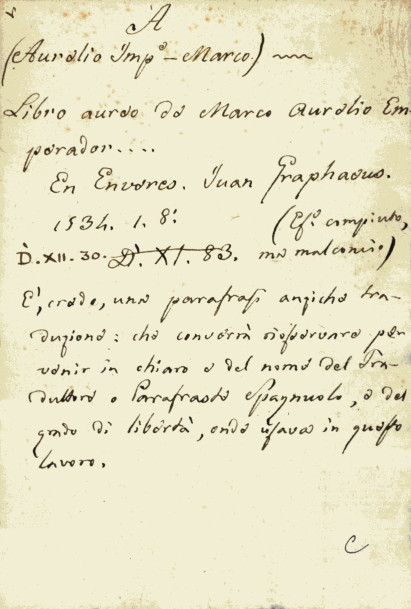 A
(Aurelio Impᵉ - Marco.)
Libro aureo de Marco Aurelio Em-
perador....
En Enveres. Juan Graphaeus.
1534. 1. 8º.
(Esᵉ compiuto,
D.XII.30. D. XI. 83. ma malconcio)
E', credo, una parafrasi anziche tra-
duzione: che converrà riosservare per
venir in chiaro e del nome del Tra-
duttore o Parafraste Spagnuolo, e del
grado di libertà, onde usava in questo
lavoro.
C